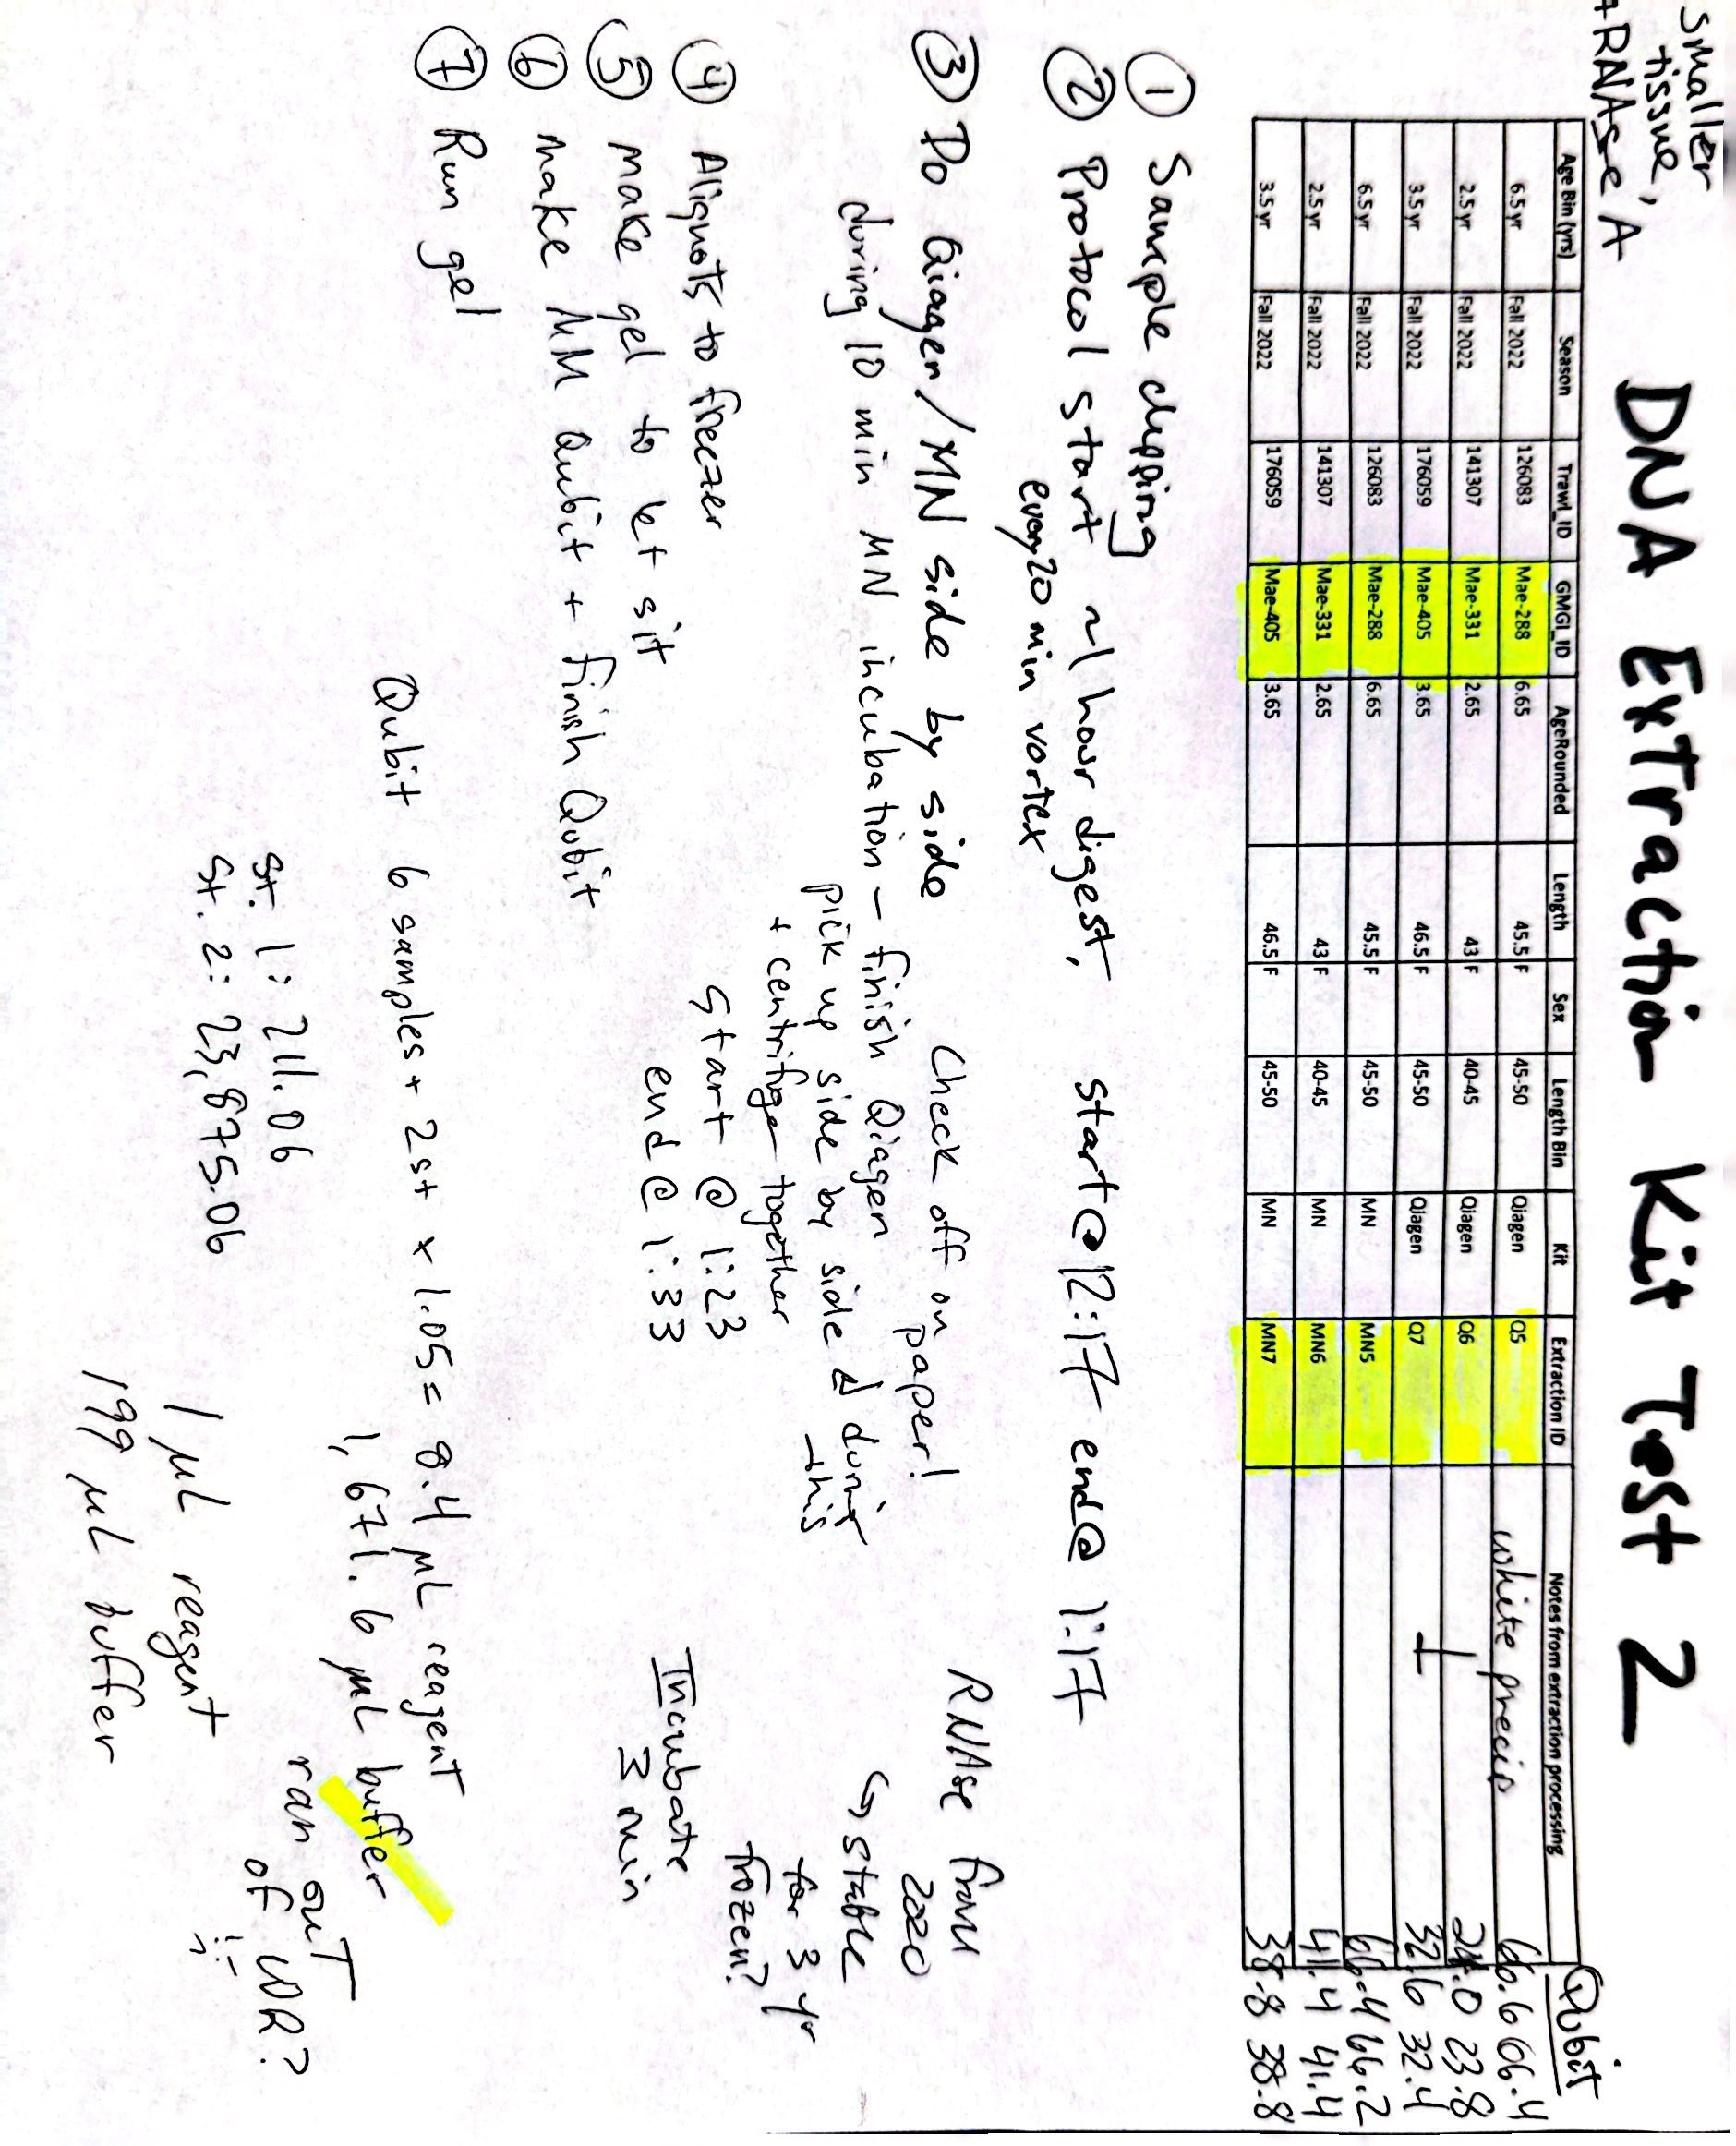 smaller
tissue,
+RNAse A
DNA Extraction Kit Test 2
Qubit
Age Bin (yrs) Season Trawl_ID GMGI_ID AgeRounded Length Sex Length Bin Kit Extraction ID Notes from extraction processing
6.5 yr Fall 2022 126083 Mae-288 6.65 45.5 F 45-50 Qiagen Q5 white precip 66.6 66.4
2.5 yr Fall 2022 141307 Mae-331 2.65 43 F 40-45 Qiagen Q6 24.0 23.8
3.5 yr Fall 2022 176059 Mae-405 3.65 46.5 F 45-50 Qiagen Q7 32.6 32.4
6.5 yr Fall 2022 126083 Mae-288 6.65 45.5 F 45-50 MN MN5 66.4 66.2
2.5 yr Fall 2022 141307 Mae-331 2.65 43 F 40-45 MN MN6 41.4 41.4
3.5 yr Fall 2022 176059 Mae-405 3.65 46.5 F 45-50 MN MN7 38.8 38.8
① Sample clipping
② Protocol start ~1 hour digest, start @ 12:17 end @ 1:17
every 20 min vortex
③ Do Qiagen/MN side by side
Check off on
paper!
during 10 min MN incubation – finish Qiagen
pick up side by side ↲ during
this
+ centrifuge together
start @ 1:23
end @ 1:33
RNAse from
2020
↳ stable
for 3 yr
frozen?
Incubate
3 min
④ Aliquots to freezer
⑤ make gel to let sit
⑥ make MM Qubit + finish Qubit
⑦ Run gel
Qubit 6 samples + 2st x 1.05 = 8.4 µL reagent
1,671.6 µL buffer
ran out
of WR?
St. 1: 211.06
St. 2: 23,875.06
1 µL reagent
199 µL buffer